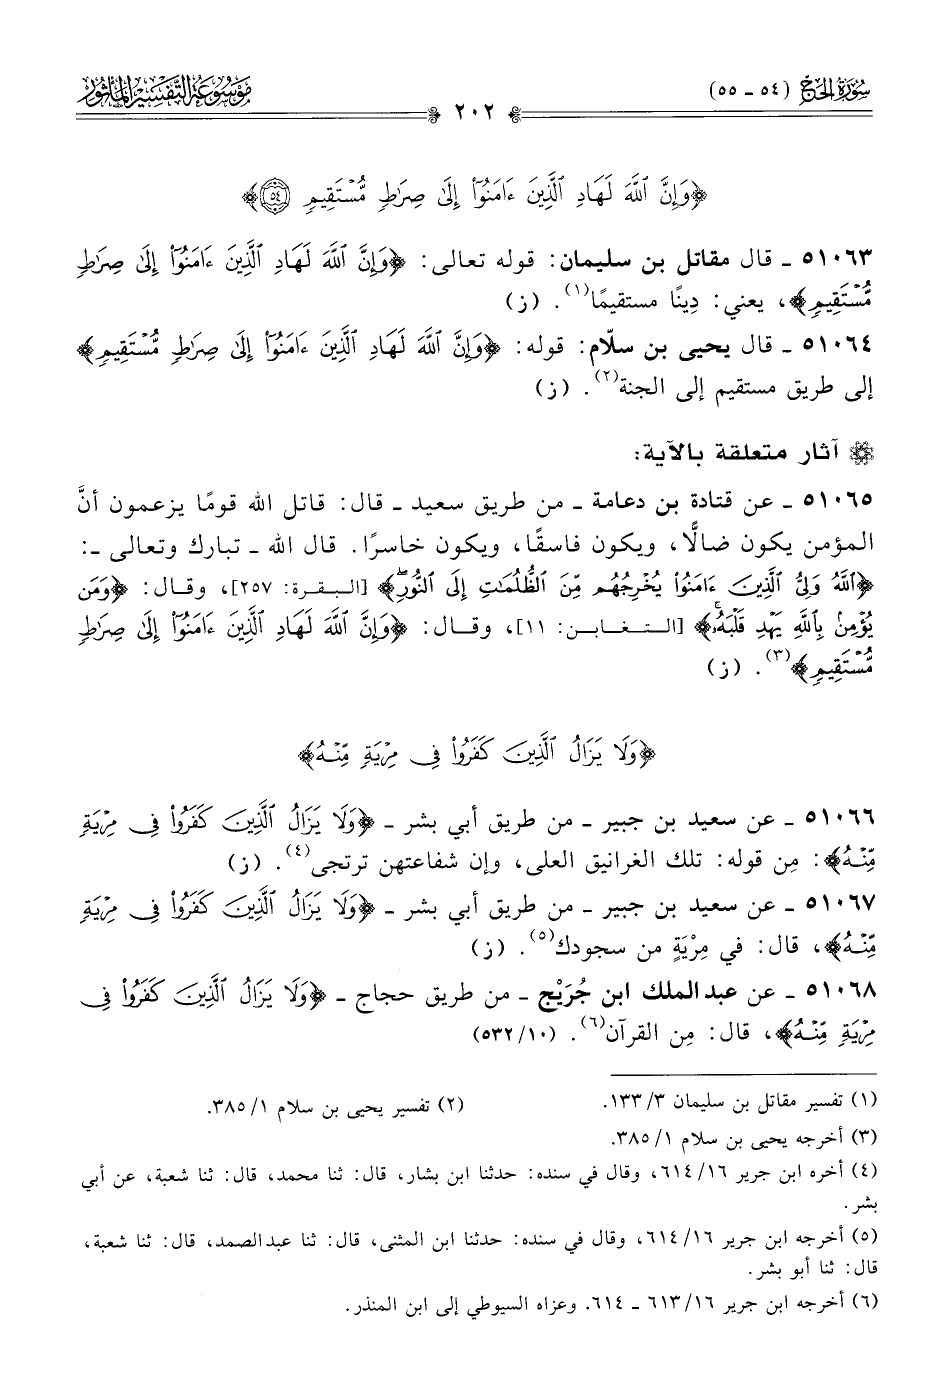 سُورَةُ الحَجّ (٥٤ - ٥٥)
٢٠٢
مَوْسُوعَة التَّفْسِير المَأْثُور
﴿وَإِنَّ ٱللَّهَ لَهَادِ ٱلَّذِينَ ءَامَنُوٓا۟ إِلَىٰ صِرَٰطٍ مُّسْتَقِيمٍ ٥٤﴾
٥١٠٦٣ ـ قال مقاتل بن سليمان: قوله تعالى: ﴿وَإِنَّ ٱللَّهَ لَهَادِ ٱلَّذِينَ ءَامَنُوٓا۟ إِلَىٰ صِرَٰطٍ
مُّسْتَقِيمٍ﴾، يعني: دِينًا مستقيمًا(١). (ز)
٥١٠٦٤ ـ قال يحيى بن سلّام: قوله: ﴿وَإِنَّ ٱللَّهَ لَهَادِ ٱلَّذِينَ ءَامَنُوٓا۟ إِلَىٰ صِرَٰطٍ مُّسْتَقِيمٍ﴾
إلى طريق مستقيم إلى الجنة(٢). (ز)
آثار متعلقة بالآية:
٥١٠٦٥ ـ عن قتادة بن دعامة ـ من طريق سعيد ـ قال: قاتل الله قومًا يزعمون أنَّ
المؤمن يكون ضالًّا، ويكون فاسقًا، ويكون خاسرًا. قال الله ـ تبارك وتعالى ـ:
﴿ٱللَّهُ وَلِىُّ ٱلَّذِينَ ءَامَنُوا۟ يُخْرِجُهُم مِّنَ ٱلظُّلُمَٰتِ إِلَى ٱلنُّورِۖ﴾ [البقرة: ٢٥٧]، وقال: ﴿وَمَن
يُؤْمِنۢ بِٱللَّهِ يَهْدِ قَلْبَهُۥۚ﴾ [التغابن: ١١]، وقال: ﴿وَإِنَّ ٱللَّهَ لَهَادِ ٱلَّذِينَ ءَامَنُوٓا۟ إِلَىٰ صِرَٰطٍ
مُّسْتَقِيمٍ﴾(٣). (ز)
﴿وَلَا يَزَالُ ٱلَّذِينَ كَفَرُوا۟ فِى مِرْيَةٍ مِّنْهُ﴾
٥١٠٦٦ ـ عن سعيد بن جبير ـ من طريق أبي بشر ـ ﴿وَلَا يَزَالُ ٱلَّذِينَ كَفَرُوا۟ فِى مِرْيَةٍ
مِّنْهُ﴾: مِن قوله: تلك الغرانيق العلى، وإن شفاعتهن ترتجى(٤). (ز)
٥١٠٦٧ ـ عن سعيد بن جبير ـ من طريق أبي بشر ـ ﴿وَلَا يَزَالُ ٱلَّذِينَ كَفَرُوا۟ فِى مِرْيَةٍ
مِّنْهُ﴾، قال: في مِرْيَةٍ من سجودك(٥). (ز)
٥١٠٦٨ ـ عن عبد الملك ابن جُرَيْج ـ من طريق حجاج ـ ﴿وَلَا يَزَالُ ٱلَّذِينَ كَفَرُوا۟ فِى
مِرْيَةٍ مِّنْهُ﴾، قال: مِن القرآن(٦). (١٠/ ٥٣٢)
(١) تفسير مقاتل بن سليمان ٣/ ١٣٣. (٢) تفسير يحيى بن سلام ١/ ٣٨٥.
(٣) أخرجه يحيى بن سلام ١/ ٣٨٥.
(٤) أخره ابن جرير ١٦/ ٦١٤، وقال في سنده: حدثنا ابن بشار، قال: ثنا محمد، قال: ثنا شعبة، عن أبي
بشر.
(٥) أخرجه ابن جرير ١٦/ ٦١٤، وقال في سنده: حدثنا ابن المثنى، قال: ثنا عبد الصمد، قال: ثنا شعبة،
قال: ثنا أبو بشر.
(٦) أخرجه ابن جرير ١٦/ ٦١٣ ـ ٦١٤. وعزاه السيوطي إلى ابن المنذر.